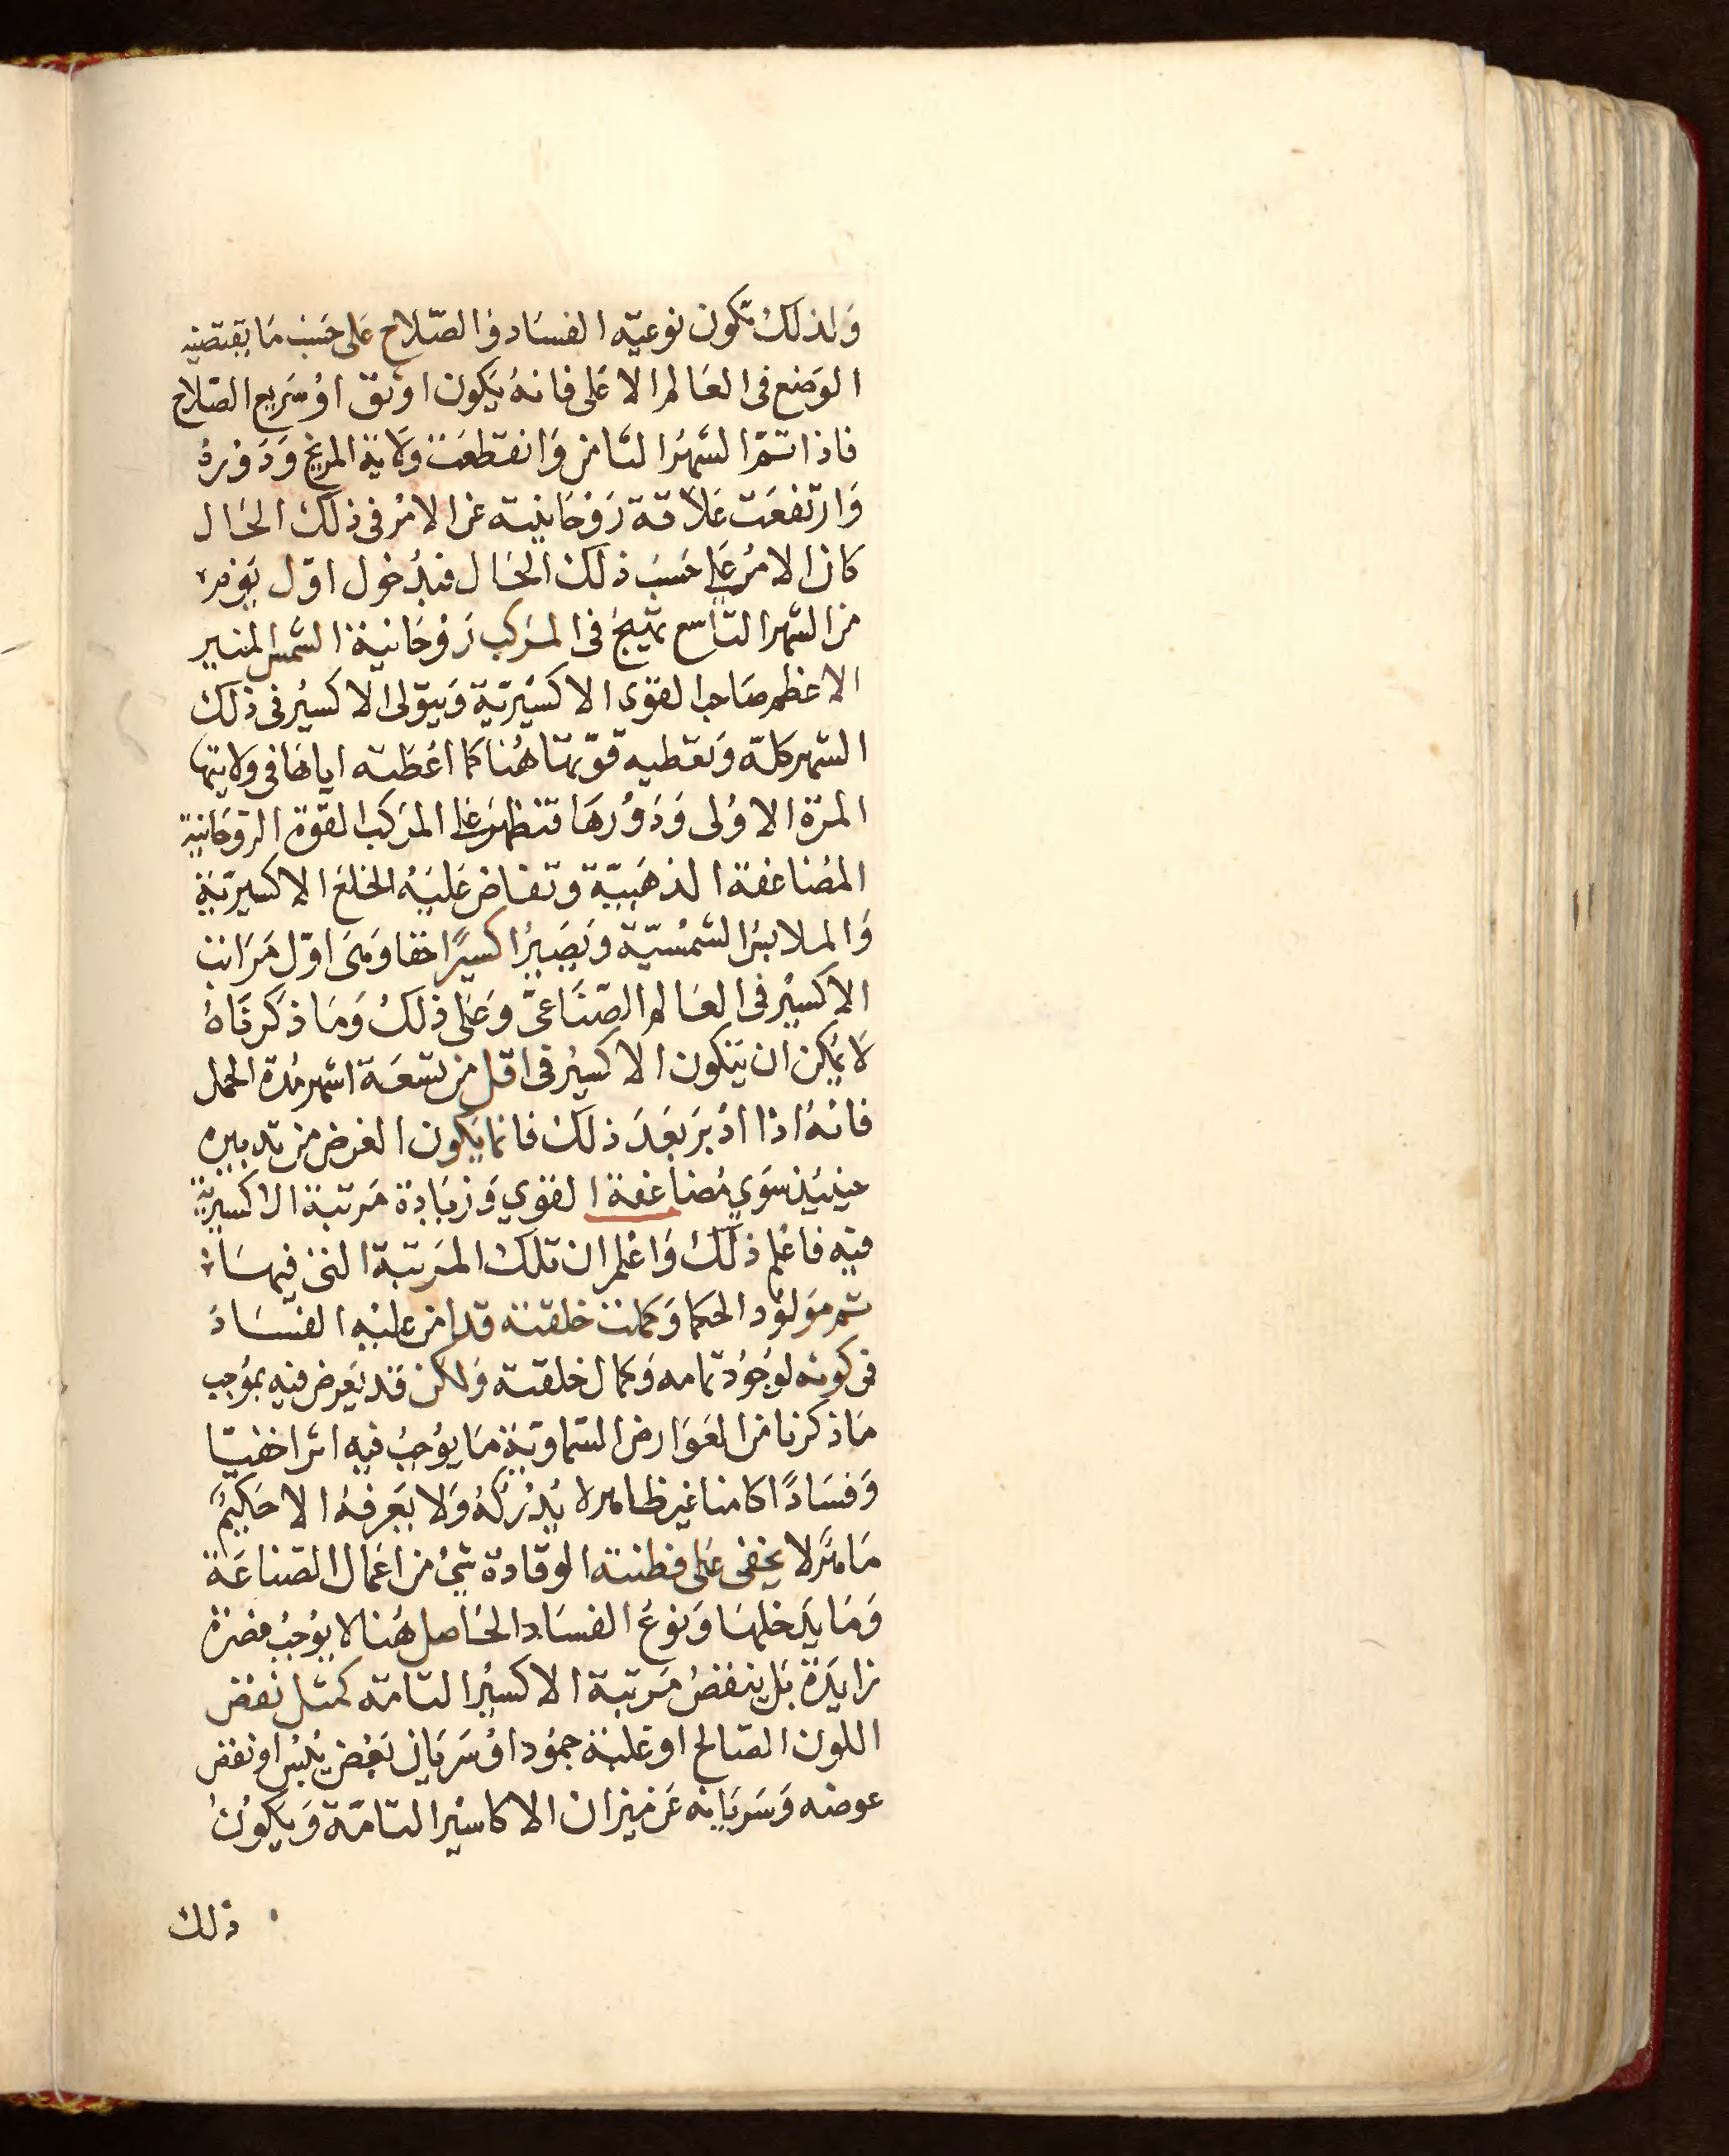 وَلذلك تكون نوعيّه الفسَاد وَالصّلاح عَلى حسَب مَا يقتضيه
الوَضع فى العَالم الاعَلى فانهُ يَكون اوثق اوْ سَريع الصّلاح
فاذا تمّ الشهرُ الثامن وَانقطعَت وَلاية المريخ وَدَوْرهُ
وَارتفعَت عَلاقة رَوْحَانيته عن الامْر فى ذلك الحَال
كان الامُر عَلى حسَب ذلك الحَال فبدُخول اوّل يَوْم
من الشهر التاسع تهيّج فى المركب رَوْحَانية الشمس المنير
الاعظم صَاحب القوى الاكسيْريّة وَيتولى الاكسيْر فى ذلك
الشهر كله وَتعطيه قوّتها هُنا كما اعْطته اياهَا فى وَلايتها
المرّة الاوُلى وَدَوْرهَا فتظهرُ عَلى المرَكب القوّة الرّوحَانية
المضَاعفة الذهَبيّة وتفاض عَليْهُ الخلع الاكسيريّة
وَالملابسُ الشمسْيّة وَيَصيرُ اكسيرًا حقا وَهىَ اوّل مَرَاتب
الاكسيْر فى العَالم الصّنَاعىّ وعَلى ذلك وَمَا ذكرنَاهُ
لَا يمُكن ان يَتكون الاكسيْر فى اقل من تسْعَة اشهر مُدة الحمل
فانهُ اذا ادْبرَ بَعْدَ ذلك فانما يَكون الغرض من تدبيره
حينيَذ سَوي مُضاعَفة القوي وَزيَادة مَرتبة الاكسيريّة
فيْه فاعْلم ذلك وَاعْلم ان تلك المرَتبة التى فيهسَا
تم موَلوُد الحكما وَكملت خلقته قد امن عليْه الفسَادَ
فى كونه لوجُوُد تمامه وَكمال خلقته وَلكن قد يَعرض فيْه بموُجب
مَا ذكرنا من العَوَارض السَّماويَّة مَا يوُجبُ فيه اثرا خفيّا
وَفسَادًا كامنا غير ظاهر لا يُدْركهُ وَلا يَعرفهُ الا حَكيْمٌ
مَاهرٌ لا يخفى عَلى فطنته الوقادة شئ من اعَمال الصّناعَة
وَمَا يدَخلهَا وَنوعُ الفسَاد الحَاصل هُنا لا يوُجبُ مضرّة
زايدَةً بَل ينقصُ مَرتبة الاكسيْر التامّه كمثل نقض
اللون الصَالح او غلبة جموُد اوْ سَرَيَان بَعْض يُبْس او نقض
عوضه وَسَريَانه عَن ميزان الاكاسيْر التامّة وَيَكوُن
ذلك